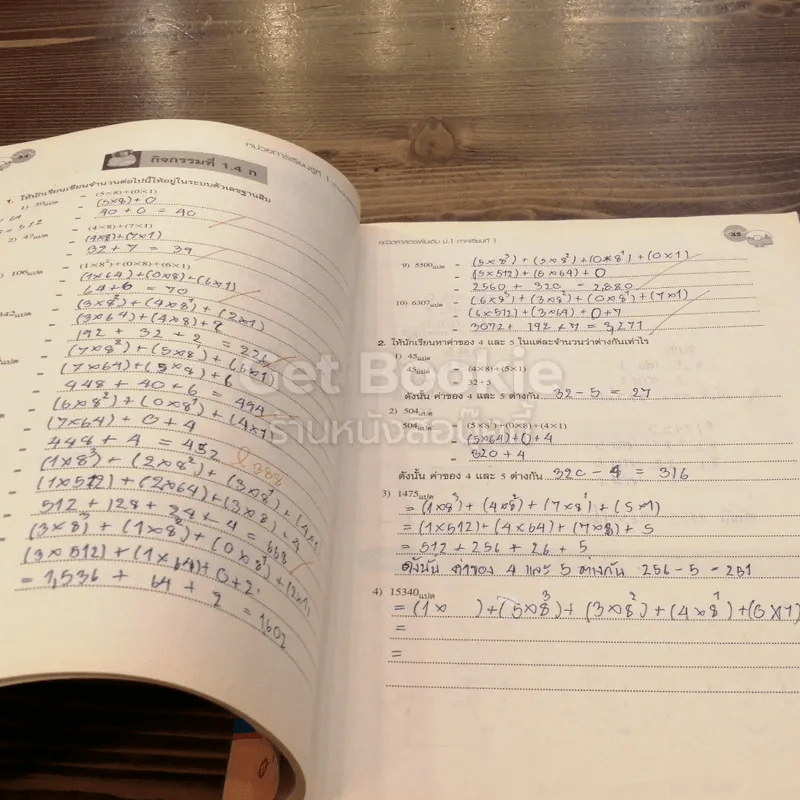 34
หน่วยการเรียนรู้ที่ 1
กิจกรรมที่ 1.4 ก
1. ให้นักเรียนเขียนจำนวนต่อไปนี้ให้อยู่ในระบบตัวเลขฐานสิบ
1) 50แปด = (5×8)+(0×1)
= (5×8)+0
= 40+0 = 40
2) 47แปด = (4×8)+(7×1)
= (4×8)+(7×1)
= 32+7 = 39
106แปด = (1×8²)+(0×8)+(6×1)
= (1×64)+(0×8)+(6×1)
= 64+6 = 70
342แปด = (3×8²)+(4×8¹)+(2×1)
= (3×64)+(4×8)+2
= 192+32+2 = 226
= (7×8²)+(5×8)+(6×1)
= (7×64)+(5×8)+6
= 448+40+6 = 494
= (6×8²)+(0×8¹)+(4×1
= (7×64)+0+4
= 448+4 = 452
388
= (1×8³)+(2×8²)+(3×8¹)+(4×1
= (1×512)+(2×64)+(3×8)+4
= 512+128+24+4 = 668
= (3×8³)+(1×8²)+(0×8¹)+(2×1)
= (3×512)+(1×64)+0+2
= 1,536+64+2 = 1602
คณิตศาสตร์เพิ่มเติม ม.1 ภาคเรียนที่ 1
35
9) 5500แปด = (5×8³)+(5×8²)+(0×8¹)+(0×1)
= (5×512)+(5×64)+0
= 2560+320 = 2,880
10) 6307แปด = (6×8³)+(3×8²)+(0×8¹)+(7×1)
= (6×512)+(3×64)+0+7
= 3072+192+7 = 3,271
2. ให้นักเรียนหาค่าของ 4 และ 5 ในแต่ละจำนวนว่าต่างกันเท่าไร
1) 45แปด
45แปด = (4×8)+(5×1)
= 32+5
ดังนั้น ค่าของ 4 และ 5 ต่างกัน 32-5 = 27
2) 504แปด
504แปด = (5×8²)+(0×8)+(4×1)
= (5×64)+0+4
= 320+4
ดังนั้น ค่าของ 4 และ 5 ต่างกัน 320 - 4 = 316
3) 1475แปด
= (1×8³)+(4×8²)+(7×8¹)+(5×1)
= (1×512)+(4×64)+(7×8)+5
= 512+256+26+5
ดังนั้น ค่าของ 4 และ 5 ต่างกัน 256-5 = 251
4) 15340แปด
= (1× )+(5×8³)+(3×8²)+(4×8¹)+(0×1)
=
=
Get Bookie
ร้านหนังสือเก็ทบุ๊คกี้